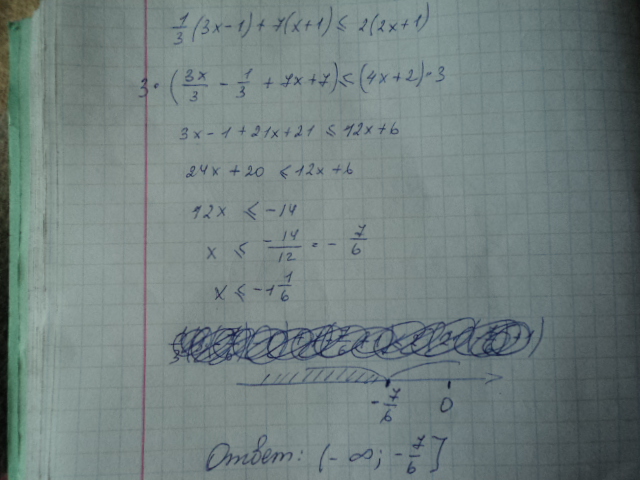 1/3 (3x-1) + 7(x+1) ≤ 2(2x+1)
3 · (3x/3 - 1/3 + 7x+7) ≤ (4x+2) · 3
3x - 1 + 21x + 21 ≤ 12x + 6
24x + 20 ≤ 12x + 6
12x ≤ -14
x ≤ -14/12 = - 7/6
x ≤ -1 1/6
-7/6 0
Ответ: (- ∞; - 7/6]